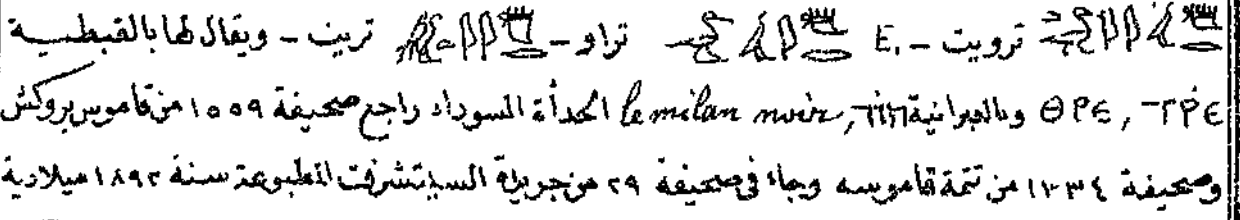 ترويت - .E تراو - ترين - ويقال لها بالقبطية
ⲑⲣⲉ, ⲧⲣⲉ وبالعبرانية le milan noir, الحدأة السوداء راجع صحيفة ١٥٥٩ من قاموس بروكش
وصحيفة ١٣٣٤ من تتمة قاموسه وجاء في صحيفة ٢٩ من جريدة السيتشرفت المطبوعة سنة ١٨٩٢ ميلادية